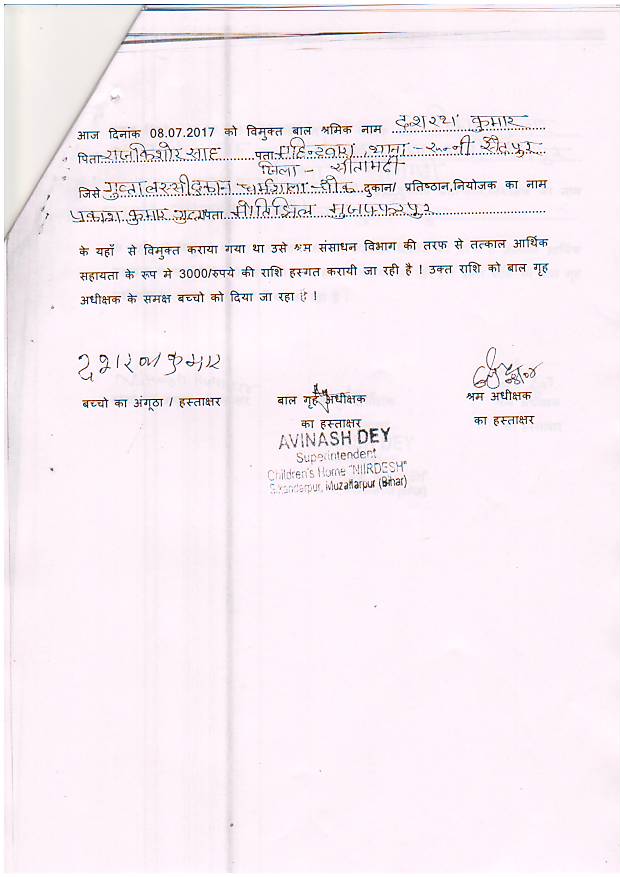 आज दिनांक 08.07.2017 को विमुक्त बाल श्रमिक नाम दशरथ कुमार
पिता राजकिशोर साह पता थाना - रून्नी सैदपुर
जिला - सीतामढी
जिसे गुप्ता लस्सी दुकान धर्मशाला - चौक दुकान/ प्रतिष्ठान,नियोजक का नाम
प्रकाश कुमार गुप्ता पता मोतिझिल मुजफ्फरपुर
के यहाँ से विमुक्त कराया गया था उसे श्रम संसाधन विभाग की तरफ से तत्काल आर्थिक
सहायता के रूप मे 3000/रुपये की राशि हस्गत करायी जा रही है ! उक्त राशि को बाल गृह
अधीक्षक के समक्ष बच्चो को दिया जा रहा है !
दशरथ कुमार
बच्चो का अंगूठा / हस्ताक्षर बाल गृह अधीक्षक श्रम अधीक्षक
का हस्ताक्षर का हस्ताक्षर
AVINASH DEY
Superintendent
Children's Home "NIIRDESH"
Sikanderpur, Muzaffarpur (Bihar)